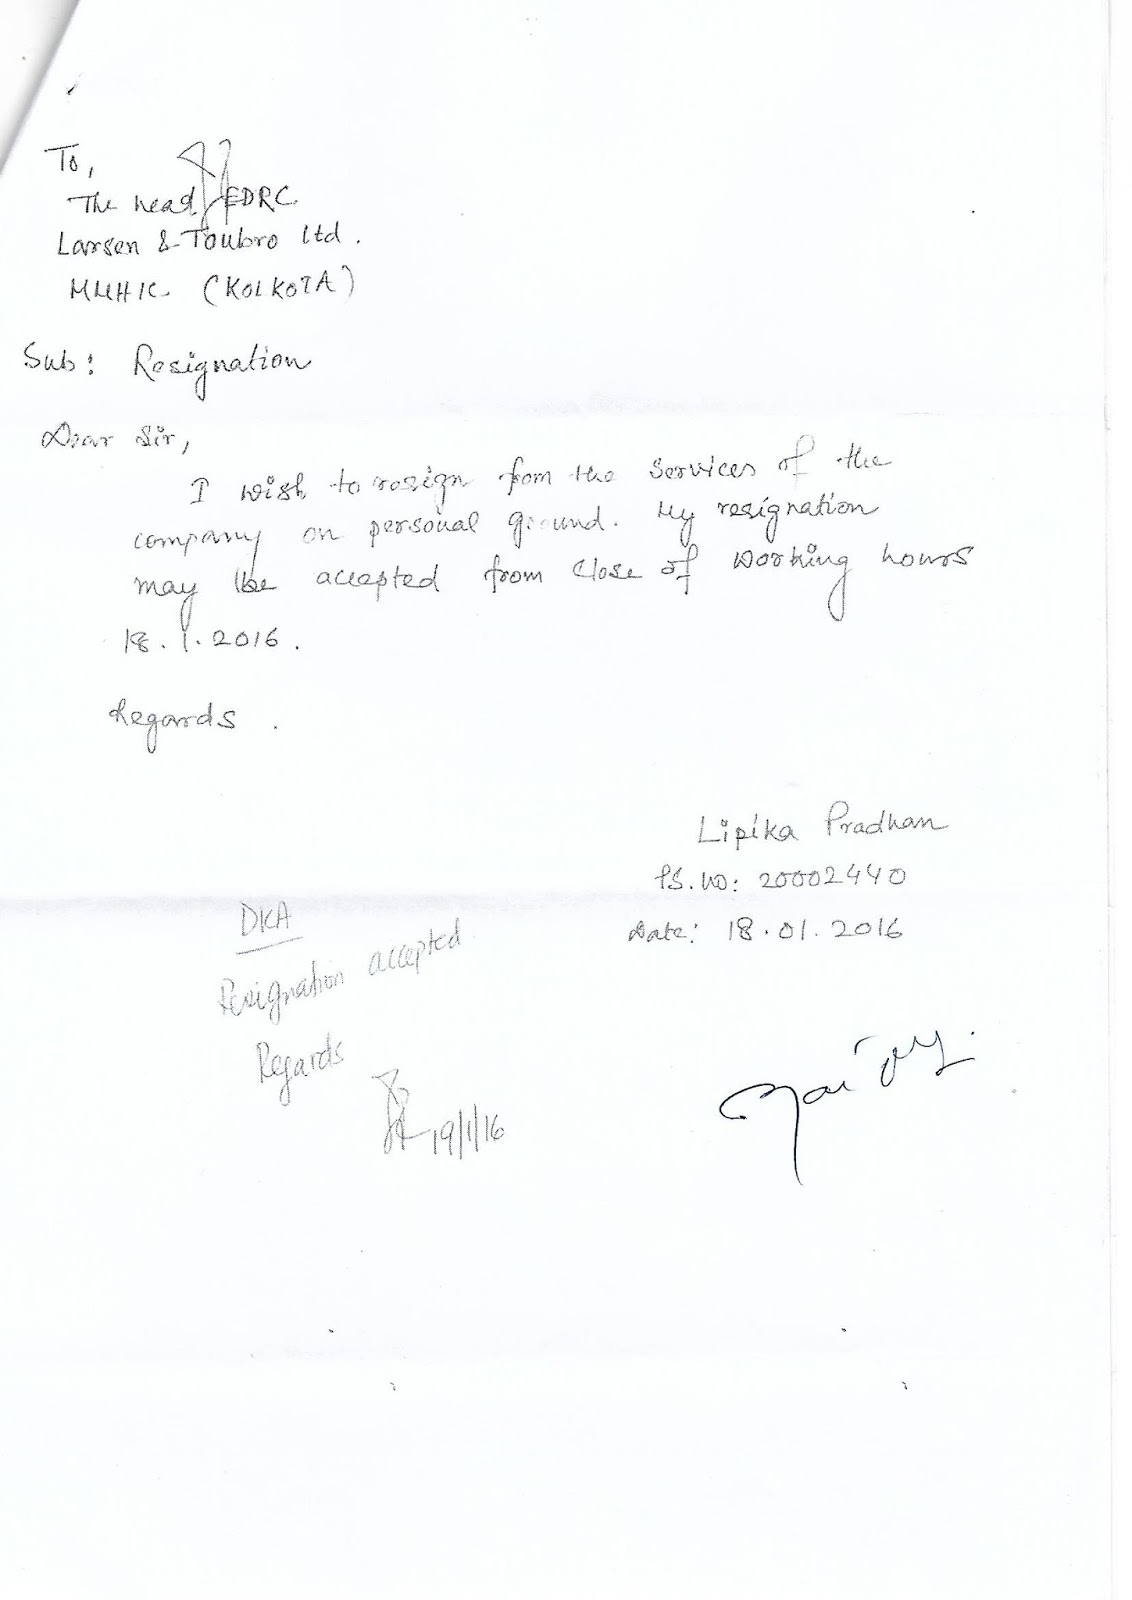 To,
The head EDRC
Larsen & Toubro Ltd.
MMHIC (KOLKOTA)
Sub: Resignation
Dear Sir,
I wish to resign from the services of the
company on personal ground. My resignation
may be accepted from close of working hours
18.1.2016.
Regards.
Lipika Pradhan
PS.NO: 20002440
Date: 18.01.2016
DKA
Resignation accepted
Regards
19/1/16